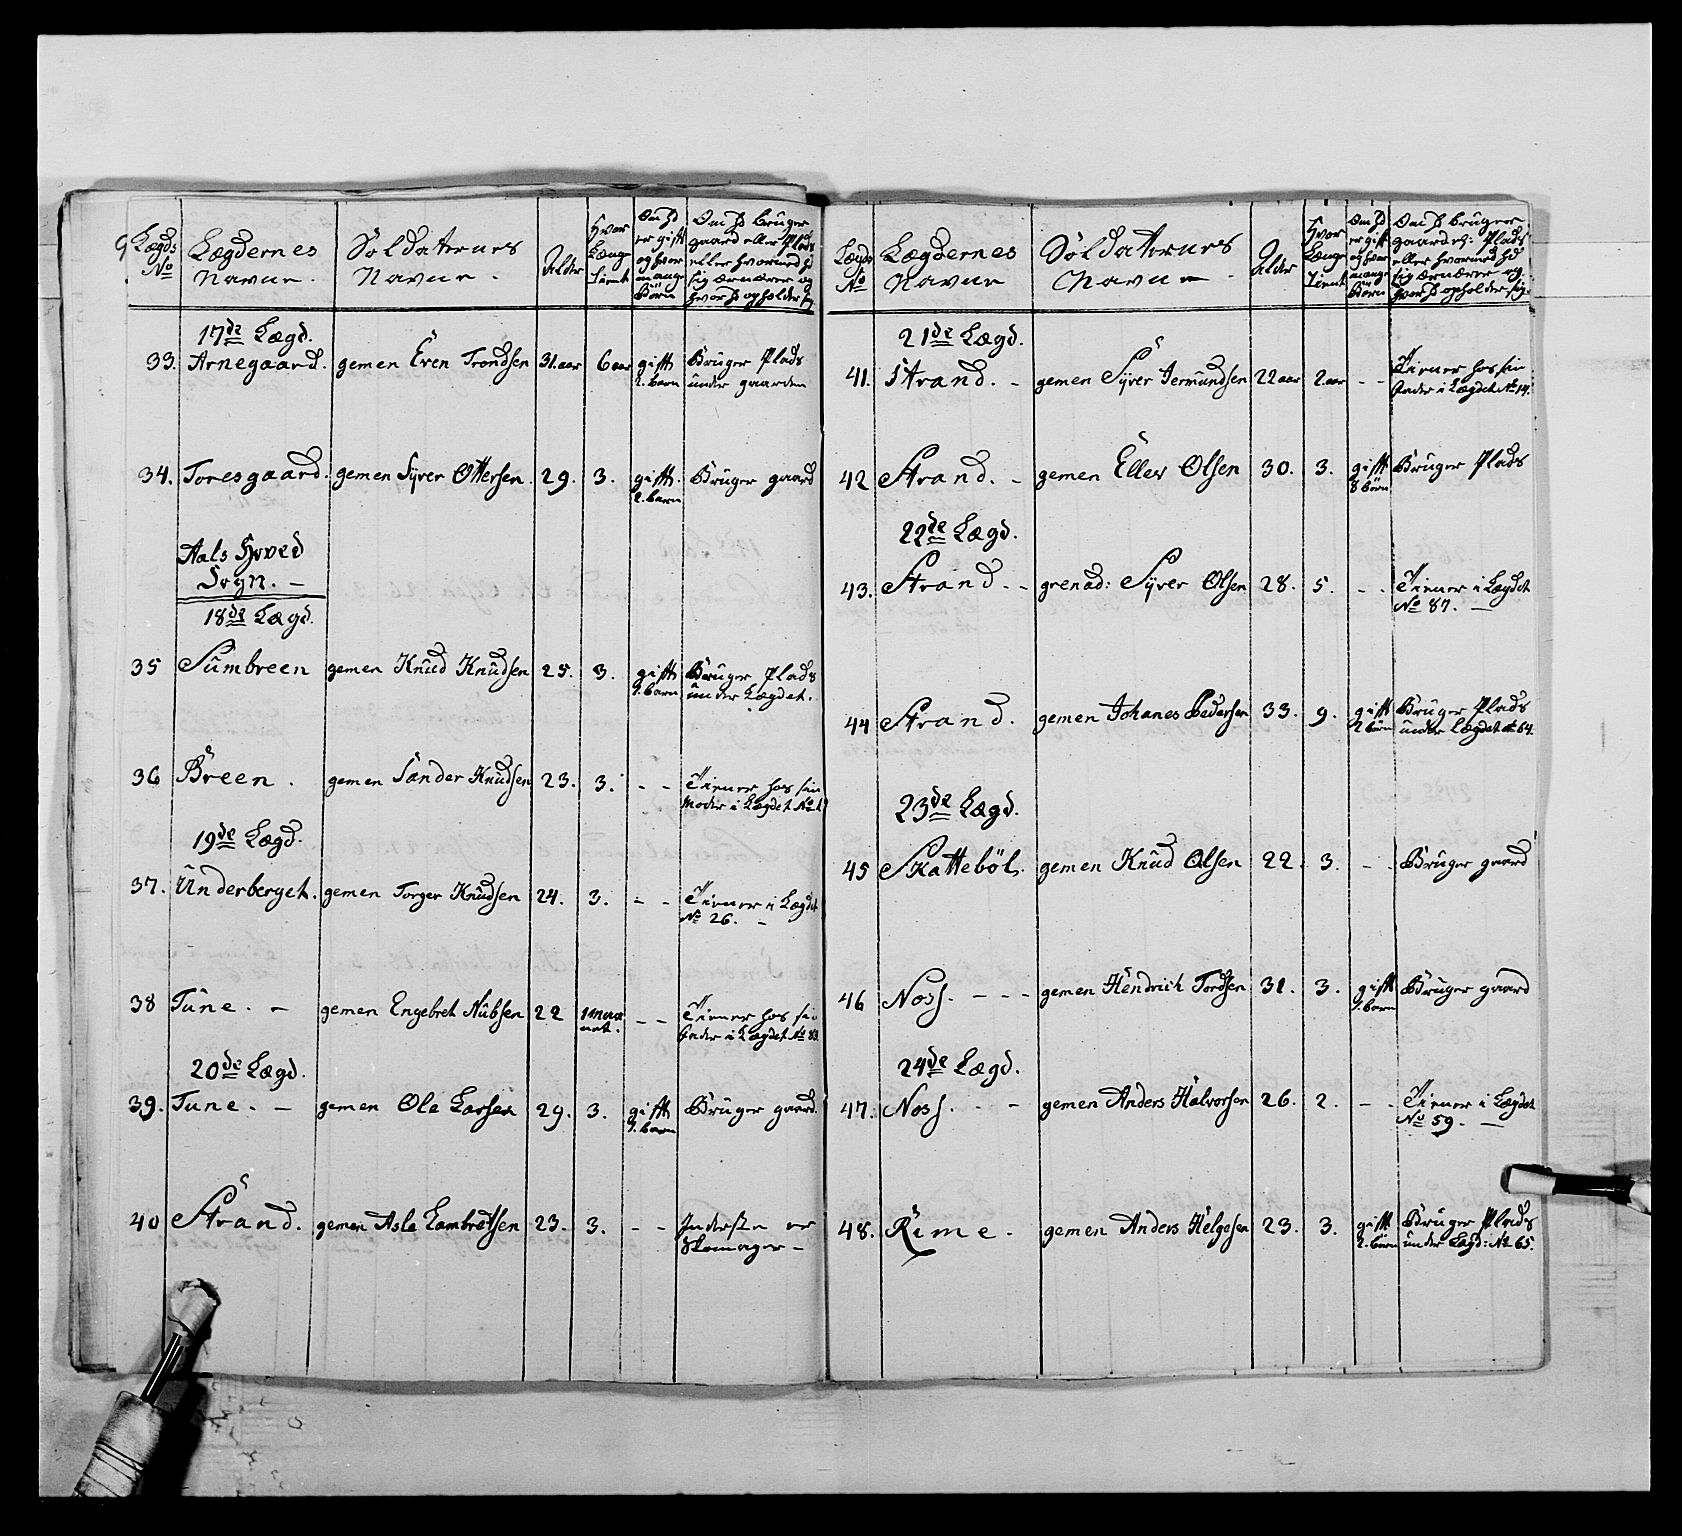 Lægds No
Lægdernes Navne.
Soldaternes Navne.
Alder
Hvor Længe Tient
Om hd er gift og hvor mange Börn
Om hd bruger gaard eller Plads eller hvormed hd sig ærnærer og hvor hd opholder sig
17de Lægd.
33. Arnegaard. gemen Even Trondsen 31. aar 6 aar gift 2. barn Bruger Plads under gaarden
34. Toresgaard. gemen Syver Ottersen. 29. 3. gift. 2. barn Bruger gaard
Aals Hoved
Sogn. —
18de Lægd.
35 Sumbreen gemen Knud Knudsen 25. 3. gift 1. barn Bruger Plads under Lægdet.
36 Breen. gemen Sander Knudsen 23. 3. - - Tiener hos sin Moder i Lægdet No 1
19de Lægd.
37. Underberget. gemen Torger Knudsen 24. 3. - - Tiener i Lægdet No 26. —
38 Tune. — gemen Engebret Nubsen 22 1 maanet. - - Tiener hos sin fader i Lægdet No 83.
20de Lægd.
39. Tune. — gemen Ole Larsen 29. 3. gift 1. barn Bruger gaard.
40 Strand. gemen Asle Lambretsen 23. 3. - - Inderste er Skomager —
Lægds No
Lægdernes Navne
Soldaternes Navne
Alder
Hvor Længe Tient
Om hd er gift og hvor mange Börn
Om hd bruger gaard el: Plads eller hvormed hd sig ærnærer og hvor hd opholder sig.
21de Lægd.
41. Strand. - gemen Syver Jermundsen 22 aar 2. aar - - Tiener hos sin fader i Lægdet No 14.
42 Strand. - gemen Ellev Olsen 30. 3. gift 3 börn Bruger Plads
22de Lægd.
43. Strand. - grenad: Syver Olsen 28. 5. - - Tiener i Lægdet No 87. —
44 Strand. gemen Johanes Pedersen 33. 9. gift 2 börn Bruger Plads under Lægdet No 64.
23de Lægd.
45 Skatteböl. gemen Knud Olsen 22. 3. - - Bruger gaard
46 Noss. - - - gemen Hendrich Tordsen 31. 3. gift 1. barn Bruger gaard
24de Lægd.
47. Noss. - - gemen Anders Halvorsen 26. 2. - - Tiener i Lægdet No 59. —
48. Rime. gemen Anders Helgesen 23. 3. gift 2. börn Bruger Plads under Lægd: No 65.